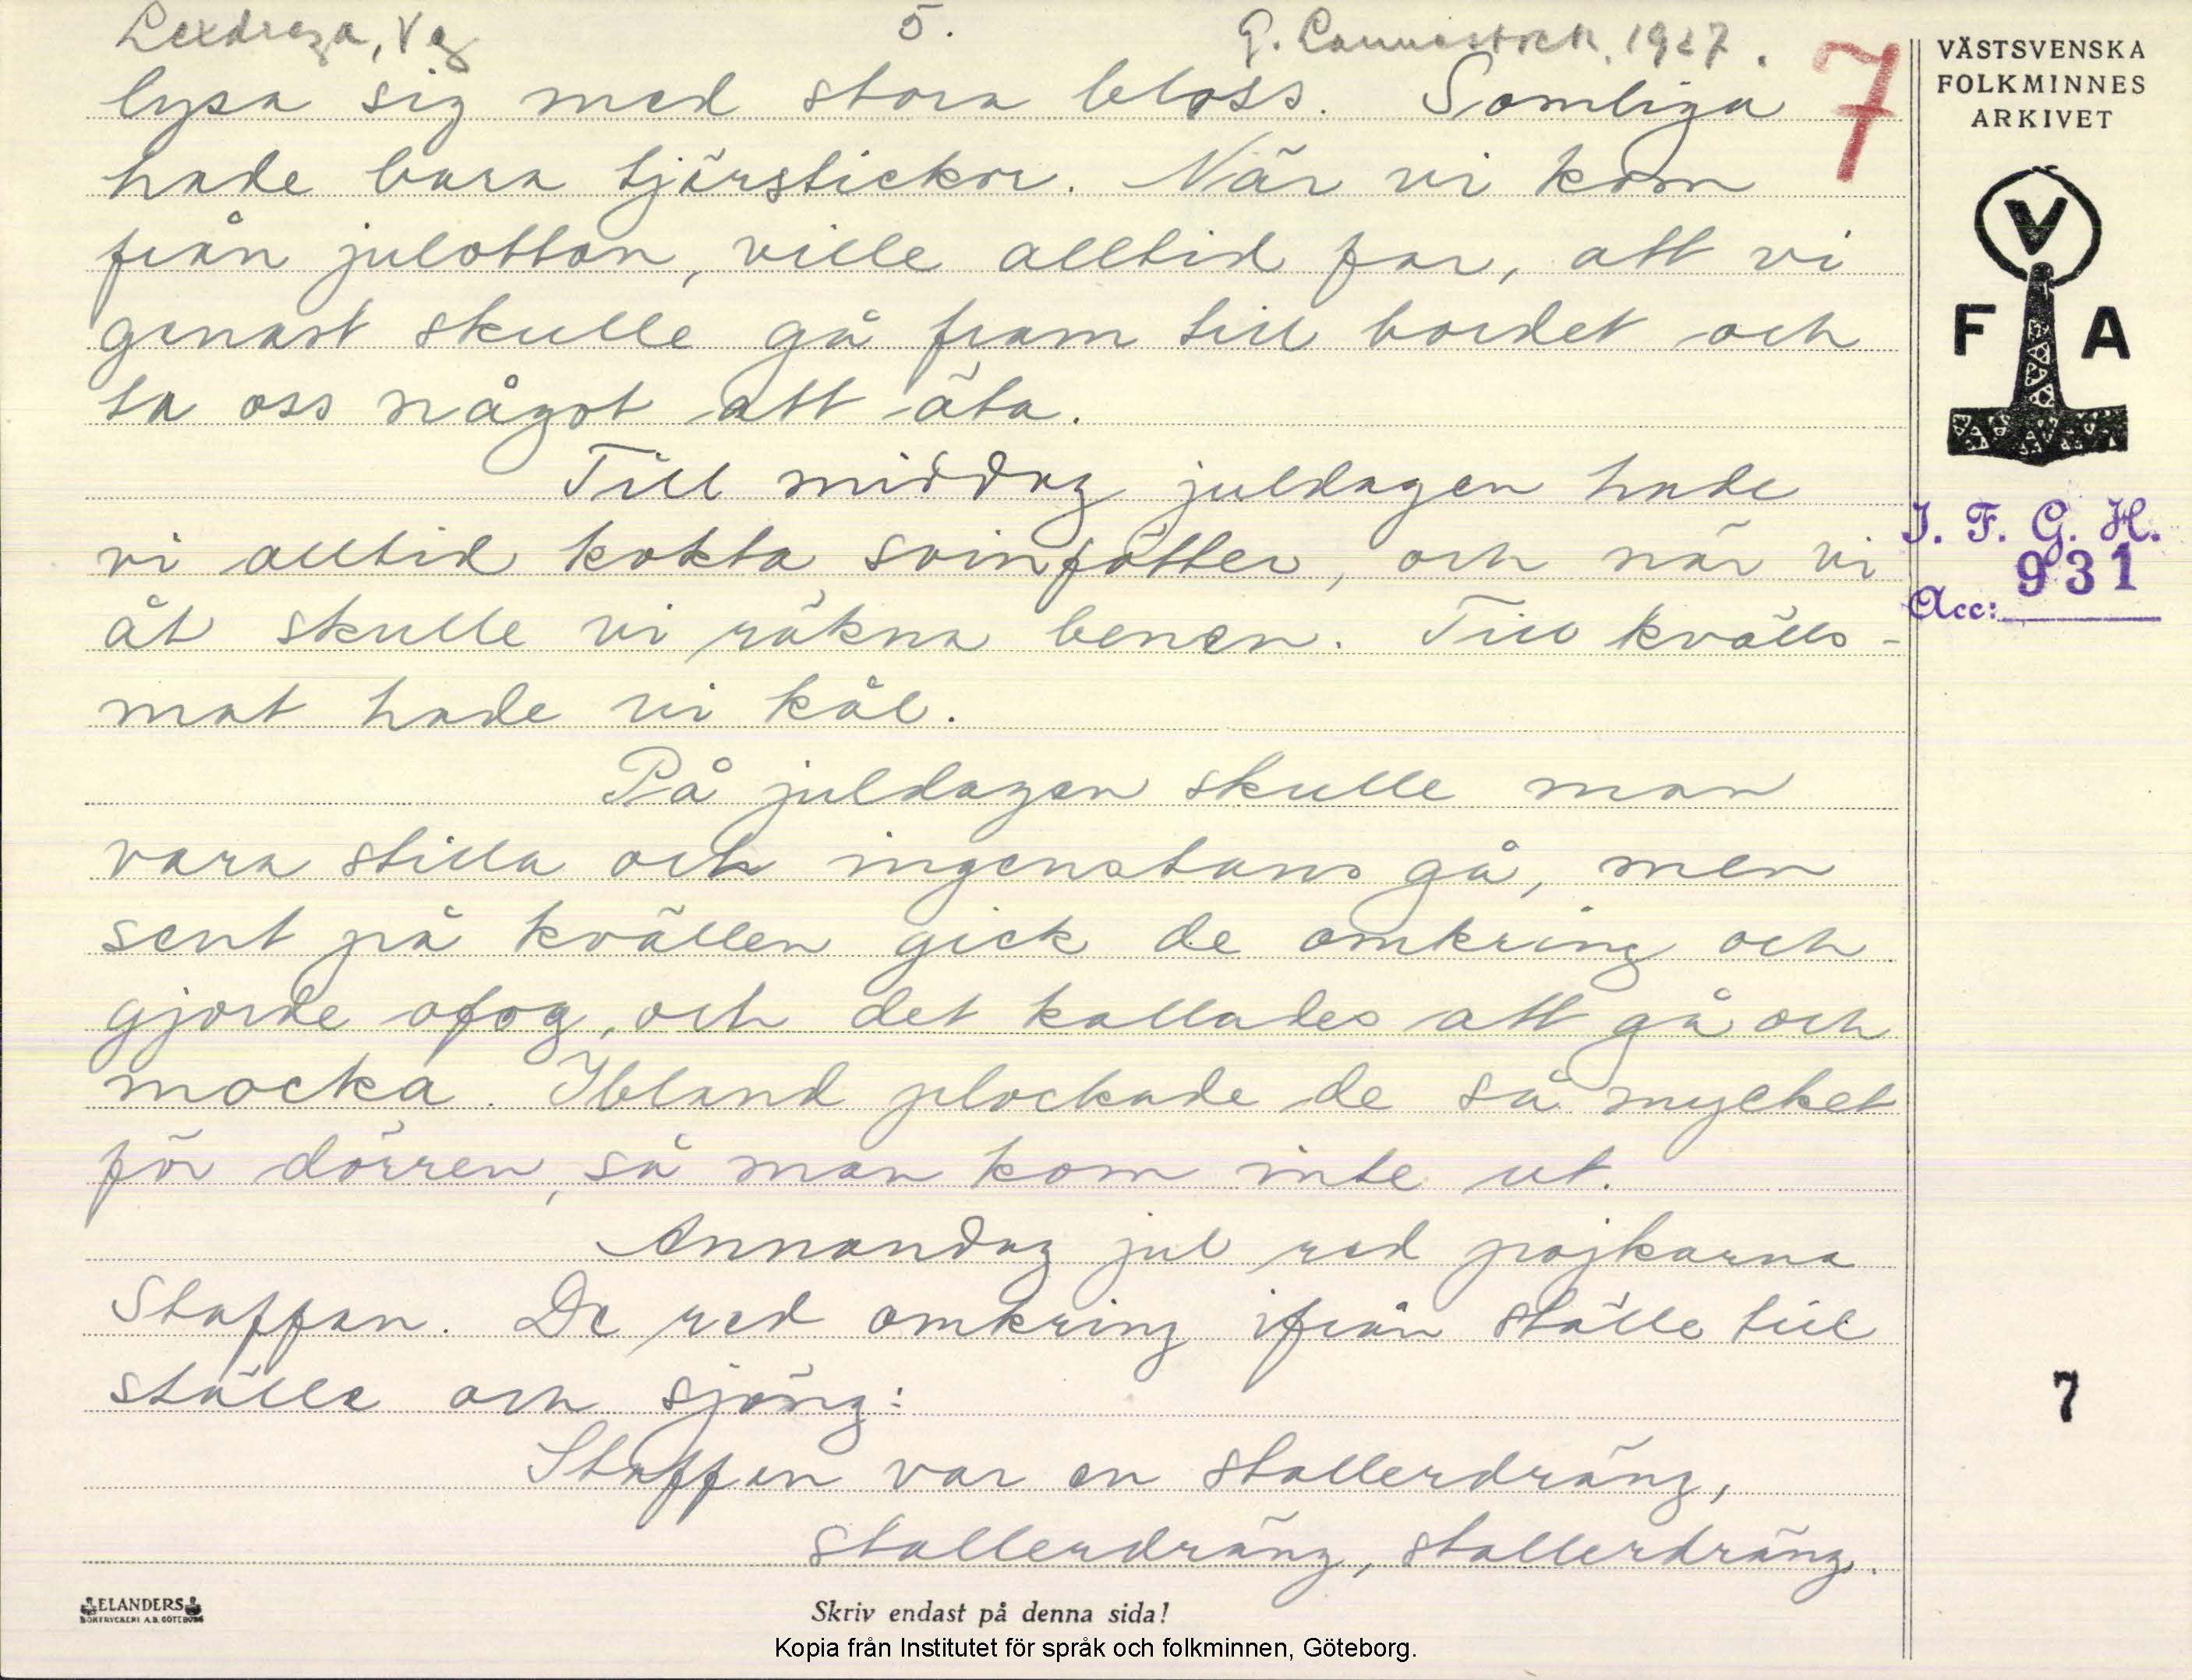 Lexdrega, Vg 5. G. 1927. 7
lysa sig med stora bloss. Somliga
hade bara tjärstickor. När vi kom
från julottan, ville alltid far, att vi
genast skulle gå fram till bordet och
ta oss något att äta.
Till middag juldagen hade
vi alltid kokta svinfötter, och när vi
åt skulle vi räkna benen. Till kvälls-
mat hade vi kål.
På juldagen skulle man
vara stilla och ingenstans gå, men
sent på kvällen gick de omkring och
gjorde ofog, och det kallades att gå och
mocka. Ibland plockade de så mycket
för dörren, så man kom inte ut.
Annandag jul red pojkarna
Staffan. De red omkring ifrån ställe till
ställe och sjöng:
Staffan var en stallerdräng,
stallerdräng, stallerdräng.
VÄSTSVENSKA
FOLKMINNES
ARKIVET
V
F A
I. F. G. H.
931
Acc:
7
ELANDERS
BOKTRYCKERI A.B. GÖTEBORG
Skriv endast på denna sida!
Kopia från Institutet för språk och folkminnen, Göteborg.